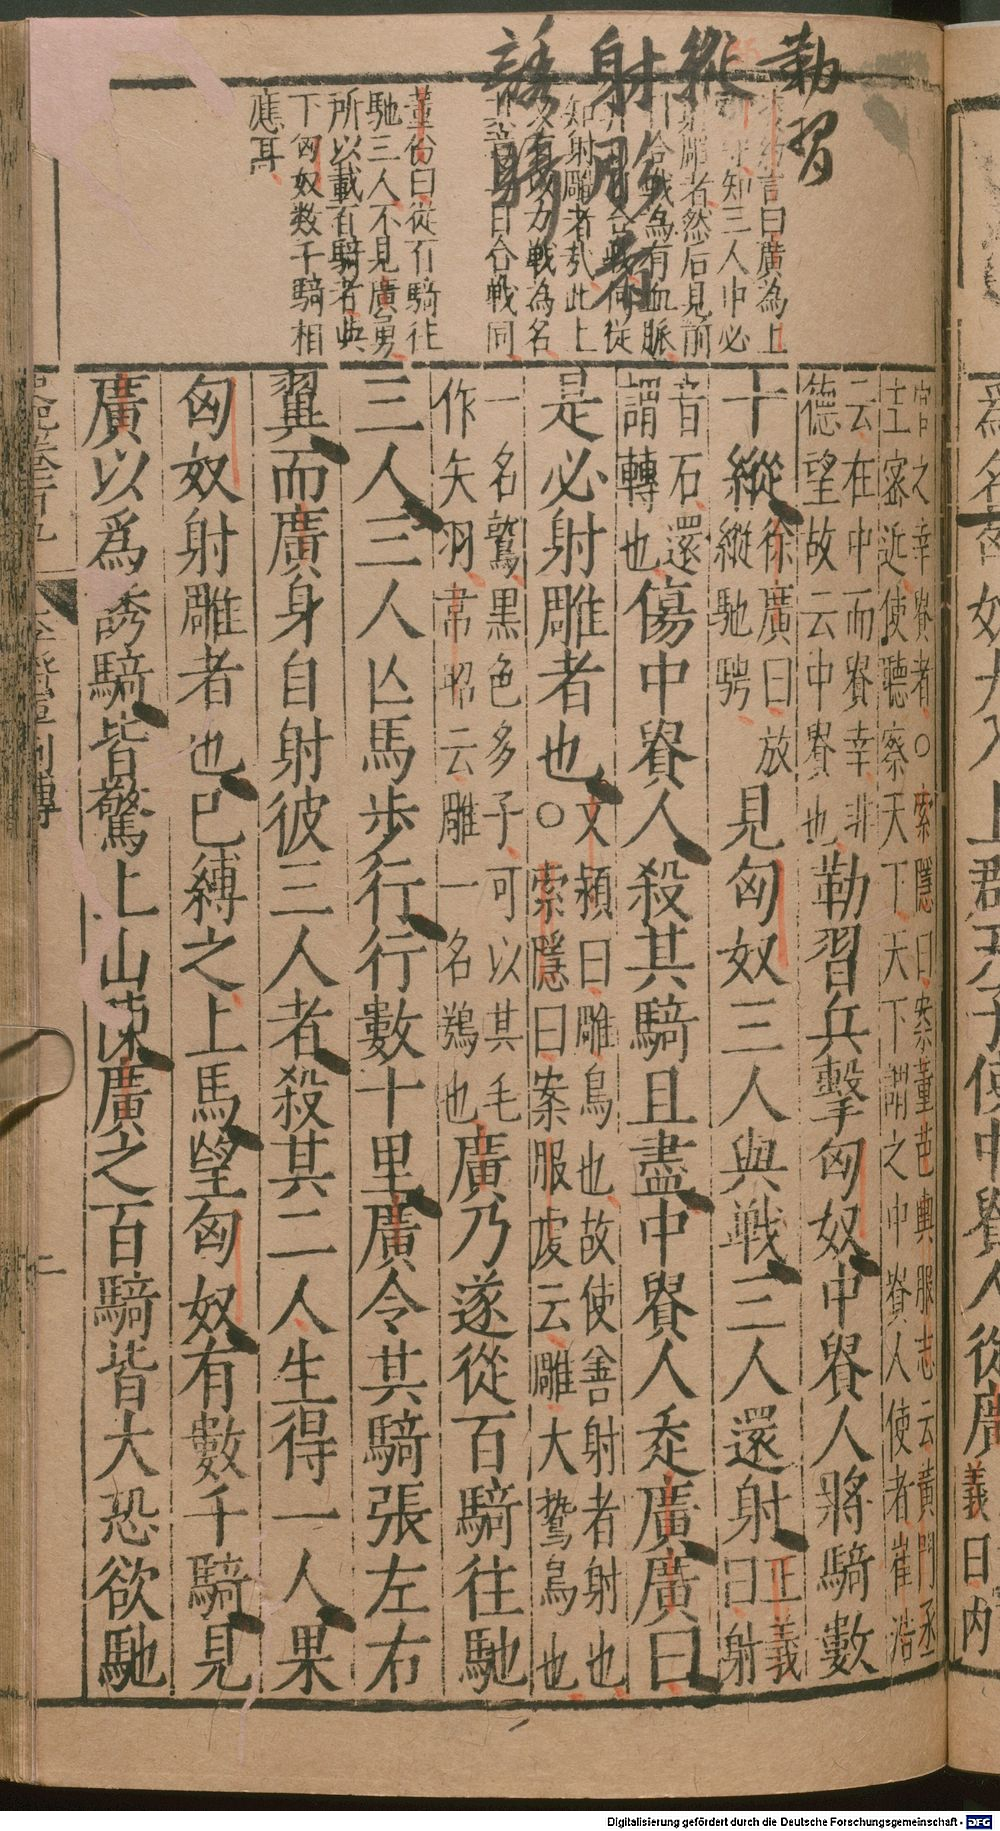 勒習
縱
射雕者
誘騎
董份曰從百騎往
馳三人不見廣勇
所以載百騎者與
下匈奴數千騎相
應耳
宦之幸貴者○索隱曰案董巴輿服志云黃門丞
主密近使聽察天下天下謂之中貴人使者崔浩
云在中而貴幸非
德望故云中貴也
勒習兵擊匈奴中貴人將騎數
十縱
徐廣曰放
縱馳騁
見匈奴三人與戰三人還射
正義
曰射
音石還
謂轉也
傷中貴人殺其騎且盡中貴人走廣廣曰
是必射雕者也
文穎曰雕鳥也故使善射者射也
○索隱曰案服虔云雕大鷙鳥也
一名鷲黑色多子可以其毛
作矢羽韋昭云雕一名鶚也
廣乃遂從百騎往馳
三人三人亾馬步行行數十里廣令其騎張左右
翼而廣身自射彼三人者殺其二人生得一人果
匈奴射雕者也已縛之上馬望匈奴有數千騎見
廣以爲誘騎皆驚上山陳廣之百騎皆大恐欲馳
Digitalisierung gefördert durch die Deutsche Forschungsgemeinschaft - DFG